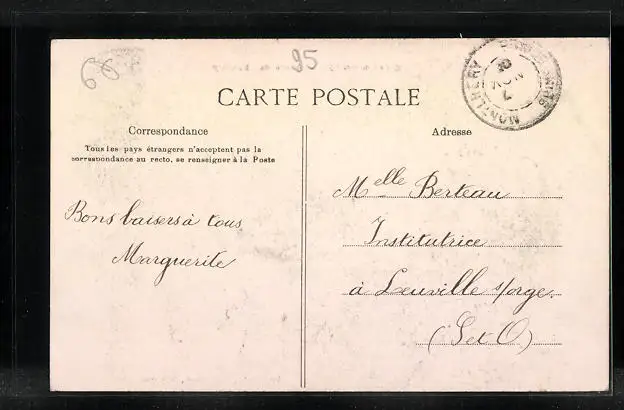 95
CARTE POSTALE
MONTLHERY
7 NOV
Correspondance
Tous les pays étrangers n'acceptent pas la
correspondance au recto, se renseigner à la Poste
Adresse
Bons baisers à tous
Marguerite
Melle Berteau
Institutrice
à Leuville s/orge
(S et O)